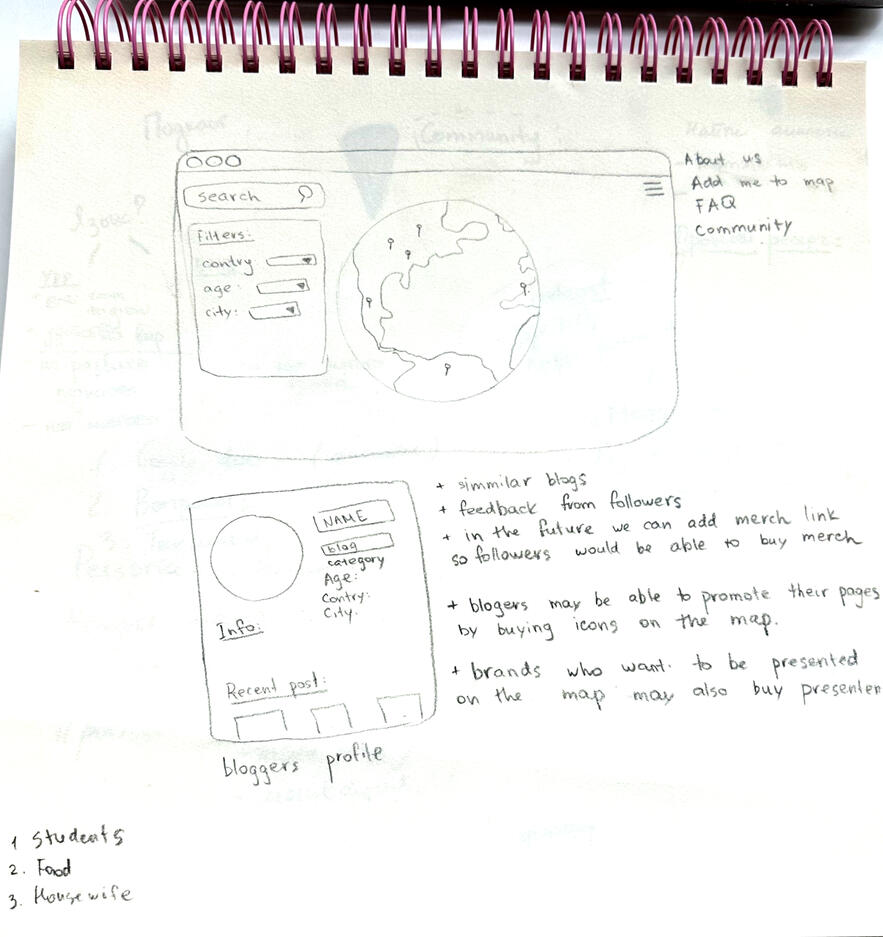 About us
Add me to map
FAQ
Community
search
Filters:
contry
age:
city:
NAME
blog
category
Age:
Contry:
City.
Info:
Recent post:
bloggers profile
+ simmilar blogs
+ feedback from followers
+ in the future we can add merch link
so followers would be able to buy merch
+ blogers may be able to promote their pages
by buying icons on the map.
+ brands who want to be presented
on the map may also buy presenten
1 Students
2. Food
3. Housewife
Подкаст
Community